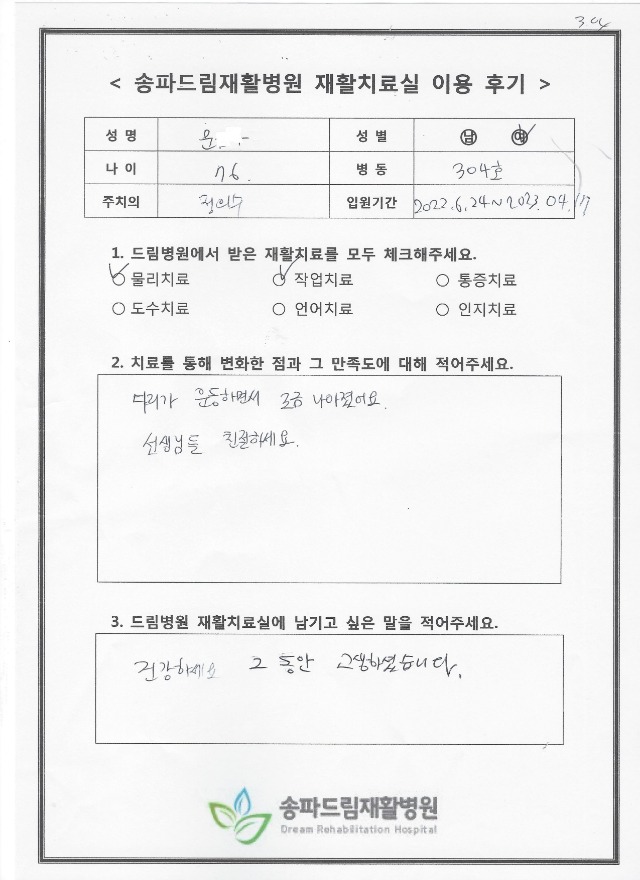 304
< 송파드림재활병원 재활치료실 이용 후기 >
성 명 윤 성 별 남 여
나 이 76. 병 동 304호
주치의 입원기간 2022.6.24~2023.04.17
1. 드림병원에서 받은 재활치료를 모두 체크해주세요.
물리치료 작업치료 통증치료
도수치료 언어치료 인지치료
2. 치료를 통해 변화한 점과 그 만족도에 대해 적어주세요.
운동하면서 조금 나아졌어요.
선생님들 친절하세요.
3. 드림병원 재활치료실에 남기고 싶은 말을 적어주세요.
건강하세요 그 동안 고생하셨습니다.
송파드림재활병원
Dream Rehabilitation Hospital